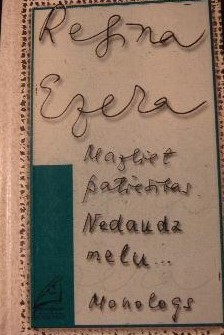 Regīna
Ezera
Mazliet
patiesības
Nedaudz
melu...
Monologs